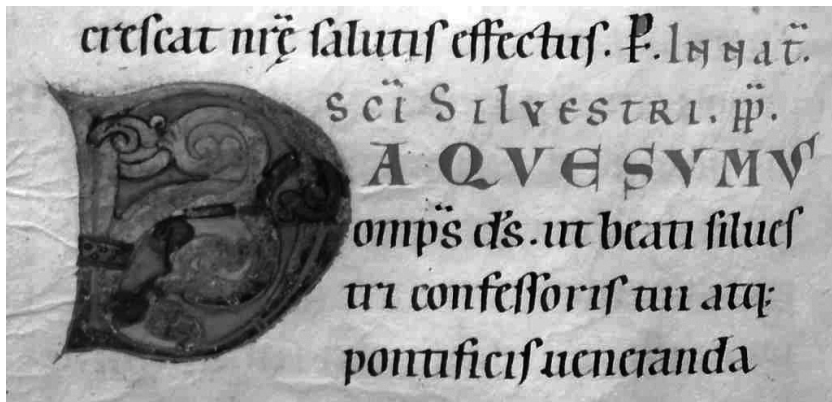 crescat nr̄ę salutis effectus. P. In nat̄.
sc̄i Silvestri. pp̄.
DA QVESVMVS
omp̄s d̄s. ut beati silues
tri confessoris tui atq;
pontificis ueneranda